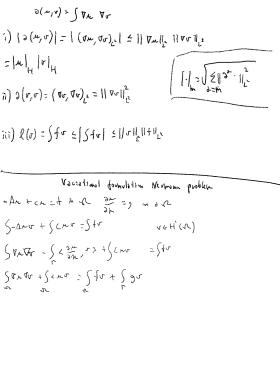 a(u,v) = ∫ ∇u ∇v
i) |a(u,v)| = |(∇u,∇v)_{L²}| ≤ ||∇u||_{L²} ||∇v||_{L²}
= |u|_H |v|_H
|·|_m = √(Σ_{α=m} ||∂^α ·||²_{L²})
ii) a(v,v) = (∇v,∇v)_{L²} = ||∇v||²_{L²}
iii) l(v) = ∫fv ≤ |∫fv| ≤ ||v||_{L²} ||f||_{L²}
Variational formulation Neumann problem
-Δu + cu = f in Ω ∂u/∂n = g on ∂Ω
∫-Δuv + ∫cuv = ∫fv v∈H¹(Ω)
∫∇u∇v - ∫_Γ <∂u/∂n, v> + ∫cuv = ∫fv
∫_Ω ∇u∇v + ∫_Ω cuv = ∫_Ω fv + ∫_Γ gv